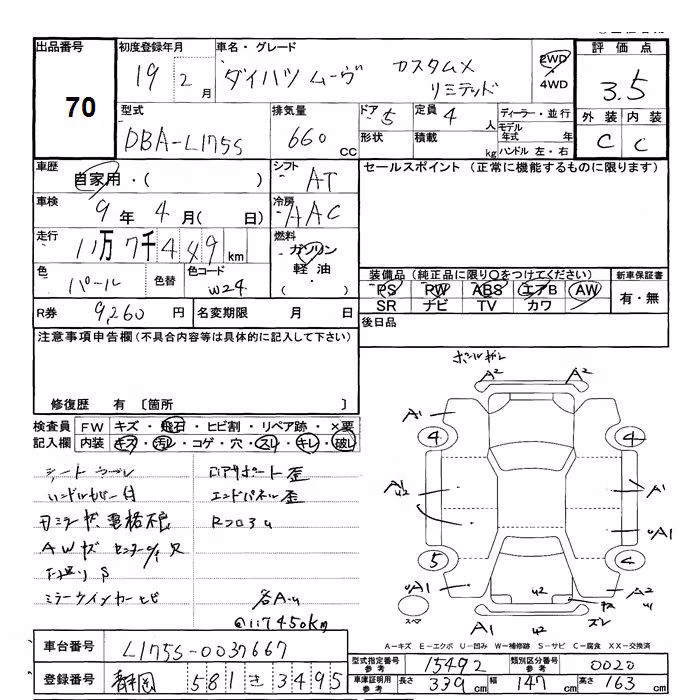 出品番号
70
初度登録年月
19 2月
車名・グレード
ダイハツ ムーヴ カスタムX
リミテッド
2WD
・
4WD
評価点
3.5
外装 内装
C C
型式
DBA-L175S
排気量
660 CC
ドア 5
形状
定員 4 人
積載 kg
ディーラー・並行
モデル年式 年
ハンドル 左・右
車歴
自家用・( )
シフト
AT
セールスポイント (正常に機能するものに限ります)
車検
9年 4月( 日)
冷房
AAC
走行
11万7千449km
燃料
ガソリン
軽油
( ・ )
色
パール
色替
色コード
W24
装備品 (純正品に限り○をつけてください)
PS PW ABS エアB AW
SR ナビ TV カワ
新車保証書
有・無
R券 9,260円
名変期限 月 日
後日品
注意事項申告欄 (不具合内容等は具体的に記入して下さい)
修復歴 有 〔箇所 〕
検査員記入欄
FW キズ・飛石・ヒビ割・リペア跡・×要
内装 キズ・汚レ・コゲ・穴・スレ・キレ・破レ
シート
ハンドルカバー付
AWキズ
下廻りS
ミラーウインカーヒビ
エンドパネル歪
Rフロアu
各A・u
@117450km
A2 A2
A1
4 4
A1
u2
A1
uA1
5 4
uA1
u2
A2
u2
A1
ズレ
A-キズ E-エクボ U-凹み W-補修跡 S-サビ C-腐食 XX-交換済
車台番号 L175S-0037667
登録番号 静岡 581 さ 3495
型式指定番号 参考 15492
類別区分番号 参考 0020
車庫証明用 参考 長さ 339cm 幅 147cm 高さ 163cm